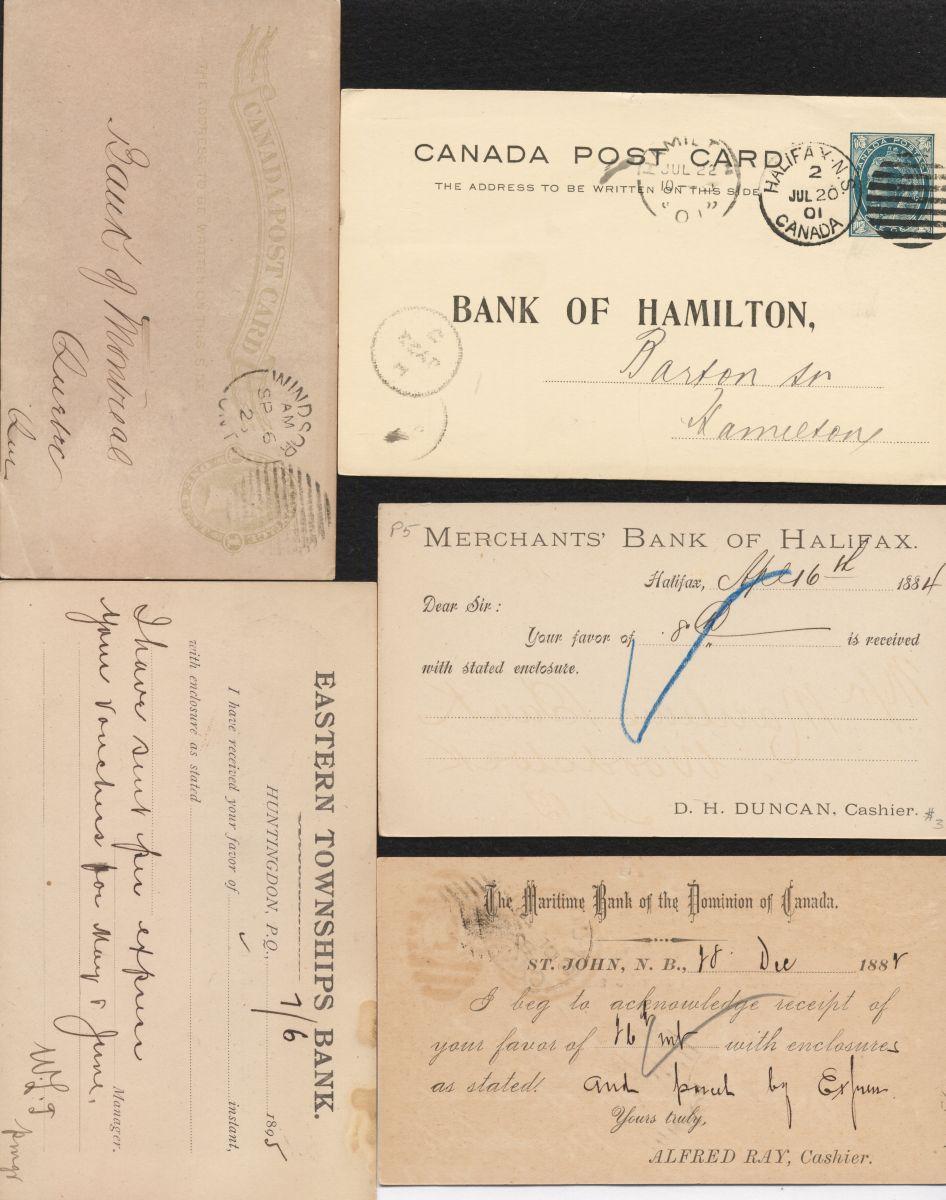 CANADA POST CARD
THE ADDRESS WRITTEN ON THIS S
Bank of Montreal
Quebec
Que
WINDSO
AM
SP 6
ONT
CANADA POST CARD
THE ADDRESS TO BE WRITTEN ON THIS SIDE
JUL 22
01
HALIFAX. N.S.
2
JUL 20
01
CANADA
CANADA POSTAGE
BANK OF HAMILTON,
Barton St
Hamilton
P5
MERCHANTS' BANK OF HALIFAX.
Halifax, Apl 16th 1884
Dear Sir:
Your favor of 8 is received
with stated enclosure.
D. H. DUNCAN, Cashier.
#3
EASTERN TOWNSHIPS BANK.
HUNTINGDON, P.Q., 7/6 1895
I have received your favor of instant,
with enclosure as stated
I have sent per express
your vouchers for May & June,
Manager.
W.L.T
pmgr
The Maritime Bank of the Dominion of Canada.
ST. JOHN, N. B., 18 Dec 188
I beg to acknowledge receipt of
your favor of 16/ with enclosures
as stated. and parcel by Express
Yours truly,
ALFRED RAY, Cashier.